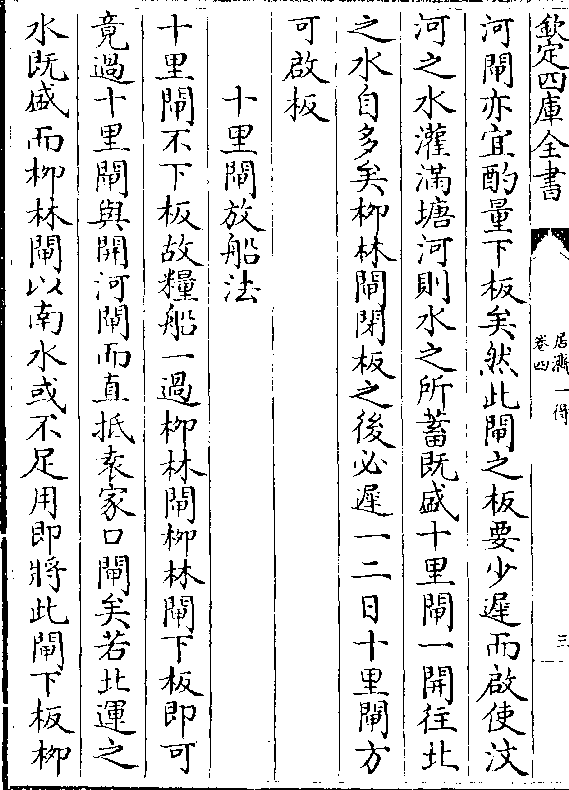 欽定四庫全書
居濟一得
卷四
三
河閘亦宜酌量下板矣然此閘之板要少遲而啟使汶
河之水灌滿塘河則水之所蓄既盛十里閘一開往北
之水自多矣柳林閘閉板之後必遲一二日十里閘方
可啟板
十里閘放船法
十里閘不下板故糧船一過柳林閘柳林閘下板即可
竟過十里閘與開河閘而直抵袁家口閘矣若北運之
水既盛而柳林閘以南水或不足用即將此閘下板柳